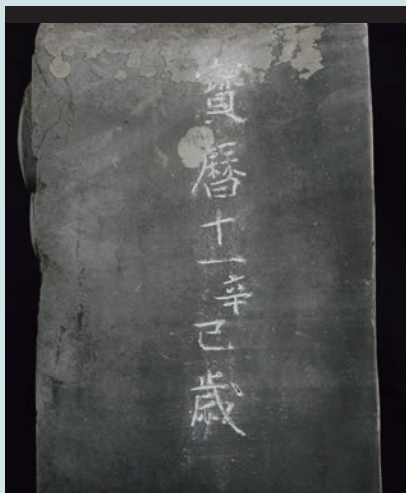 寳曆十一辛巳歳